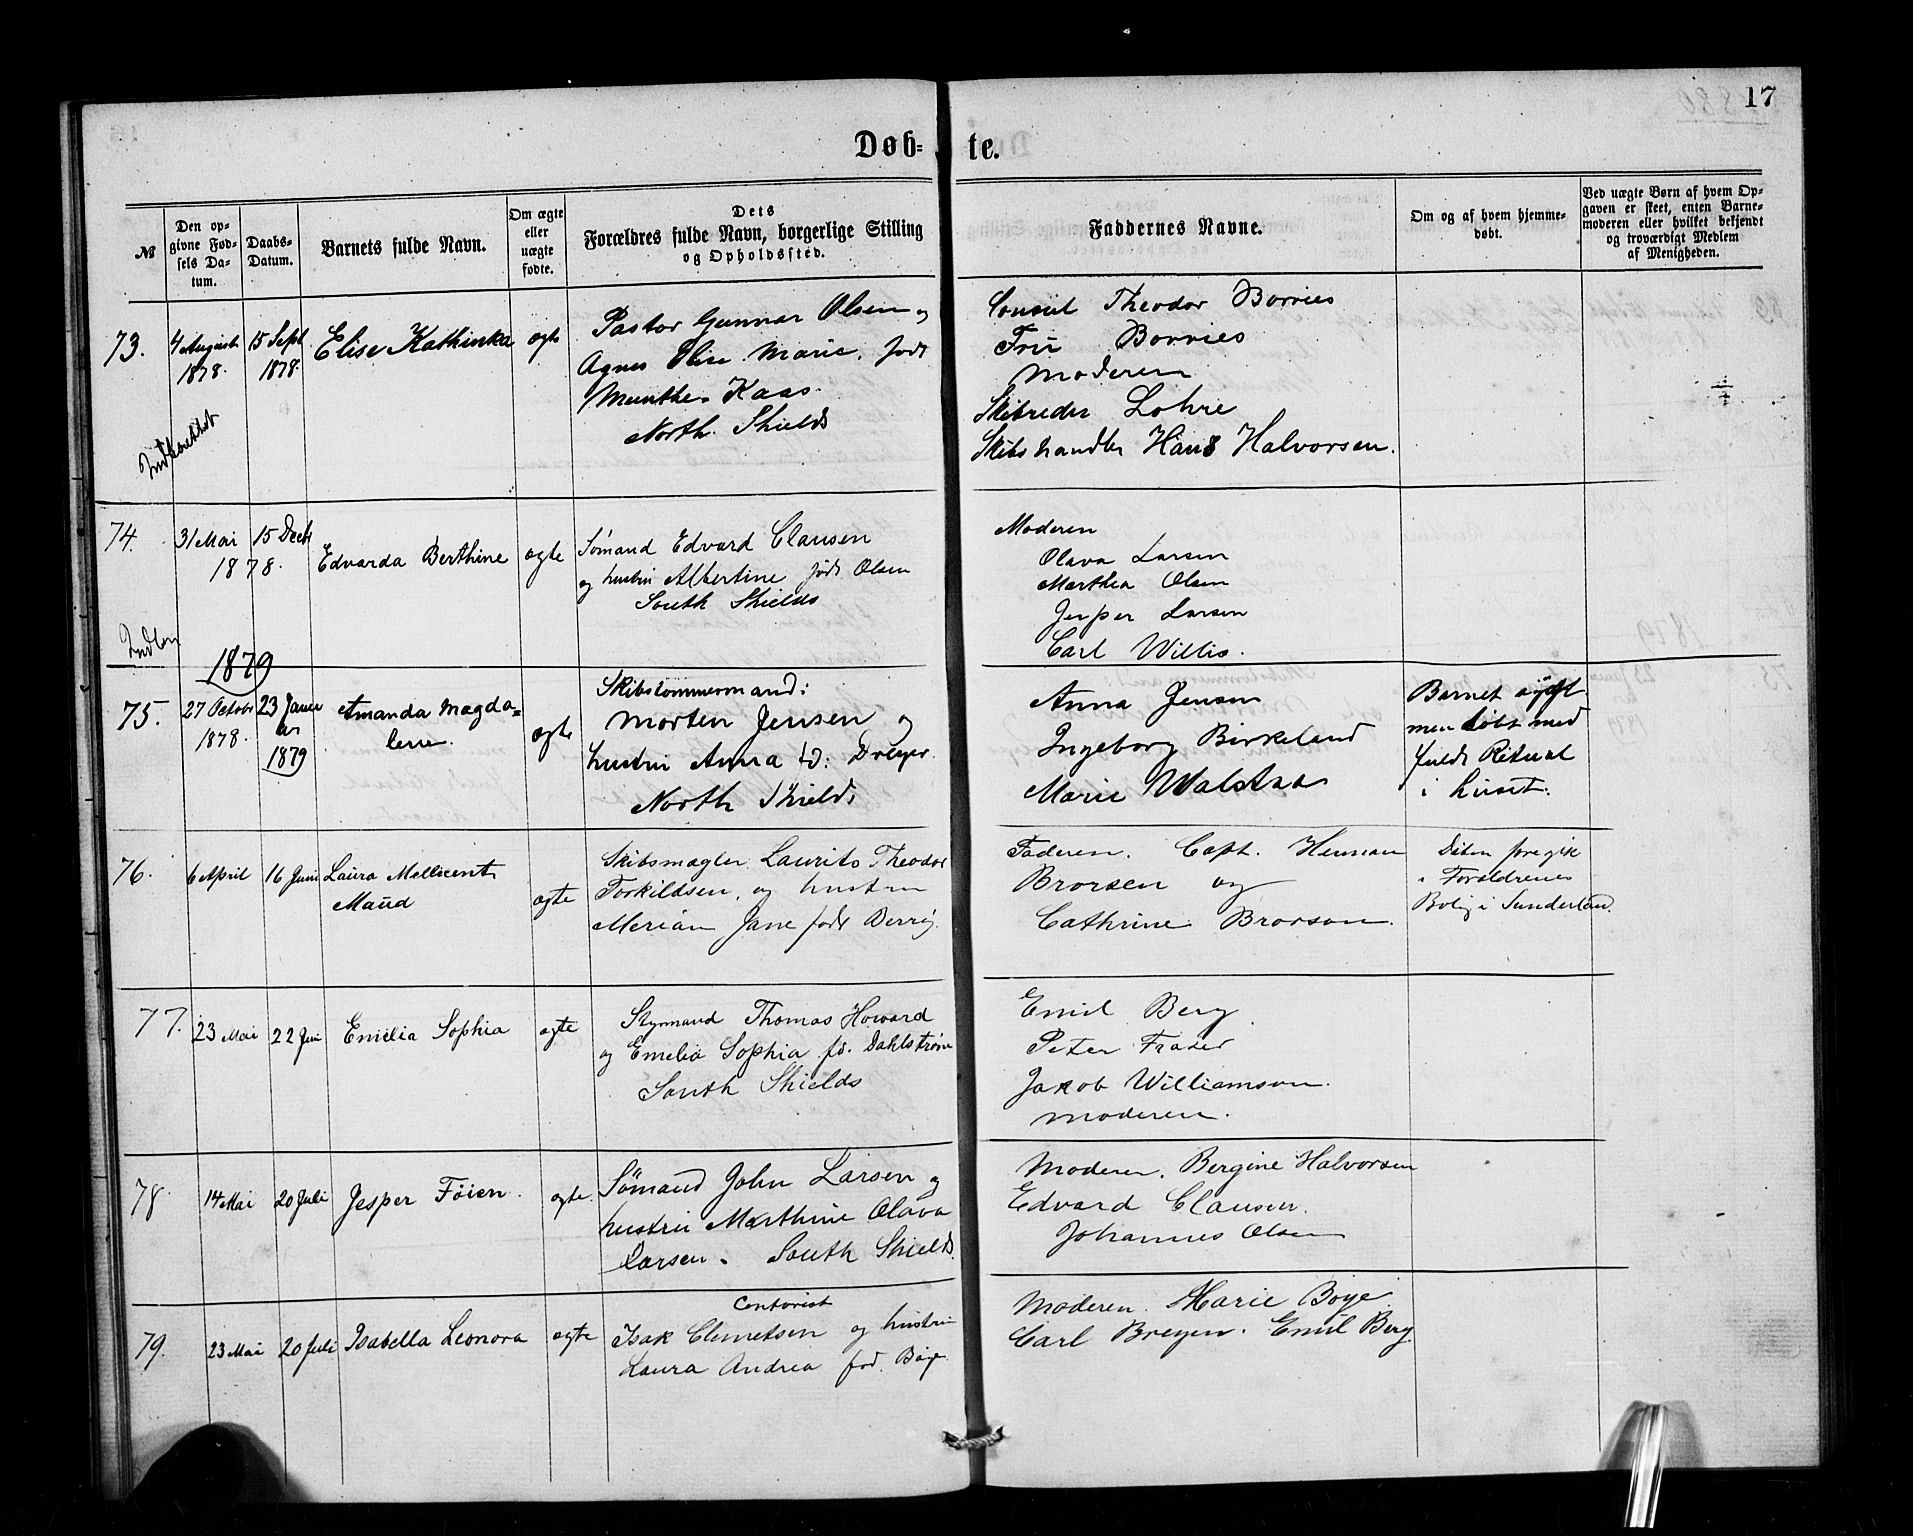 17
Døb- te.
№
Den opgivne Fødsels Datum.
Daabs-Datum.
Barnets fulde Navn.
Om ægte eller uægte fødte.
Dets
Forældres fulde Navn, borgerlige Stilling
og Opholdssted.
Faddernes Navne.
Om og af hvem hjemmedøbt.
Ved uægte Børn af hvem Op-
gaven er skeet, enten Barne-
moderen eller hvilket bekjendt
og troværdigt Medlem
af Menigheden.
73.
4 August
1878.
15 Sept
1878.
Elise Kathinka
ægte
Pastor Gunnar Olsen og
Agnes Elise Marie, født
Munthe Kaas.
North Shields
Consul Theodor Borries
Fru Borries
Moderen
Skibreder Lohre
Skibshandler Hans Halvorsen.
74.
31 Mai
15 Decb
1878.
Edvarda Berthine
ægte
Sømand Edvard Clausen
og hustru Albertine født Olsen
South Shields
Moderen
Olava Larsen
Marthea Olsen
Jesper Larsen
Carl Willis.
1879
75.
27 Octobr
1878.
23 Januar
1879
Amanda Magda=
lene.
ægte
Skibstømmermand:
Morten Jensen og
hustru Anna fd: Dreyer.
North Shields
Anna Jensen
Ingeborg Birkeland
Marie Walstad
Barnet sygt
men døbt med
fuldt Ritual
i huset.
76.
6 April
16 Juni
Laura Mellicent
Maud
ægte
Skibsmægler Laurits Theodor
Torkildsen, og hustru
Merian Jane født Berry.
Faderen. Capt. Herman
Brorsen og
Cathrine Brorson.
Daaben foregik
i Forældrenes
Bolig i Sunderland.
77.
23 Mai
22 Juni
Emelia Sophia
ægte
Styrmand Thomas Howard
og Emelia Sophia fd. Dahlstrøm
South Shields
Emil Berg.
Peter Fraser
Jakob Williamson.
Moderen.
78.
14 Mai
20 Juli
Jesper Föien.
ægte.
Sømand John Larsen og
hustru Marthine Olava
Larsen. South Shields.
Moderen. Bergine Halvorsen
Edvard Clausen.
Johannes Olsen
79.
23 Mai
20 Juli
Isabella Leonora
ægte
Contorist
Isak Clemetsen og hustru
Laura Andrea fød. Bøye
Moderen. Marie Boye.
Carl Breyen. Emil Berg.